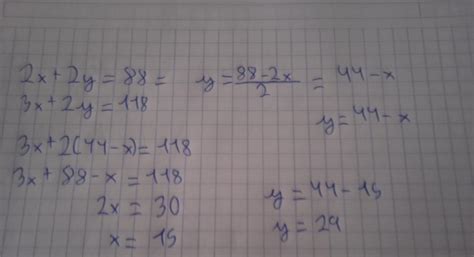 2x + 2y = 88 = y = 88-2x / 2 = 44 - x
3x + 2y = 118
y = 44 - x
3x + 2(44 - x) = 118
3x + 88 - x = 118
2x = 30
x = 15
y = 44 - 15
y = 29